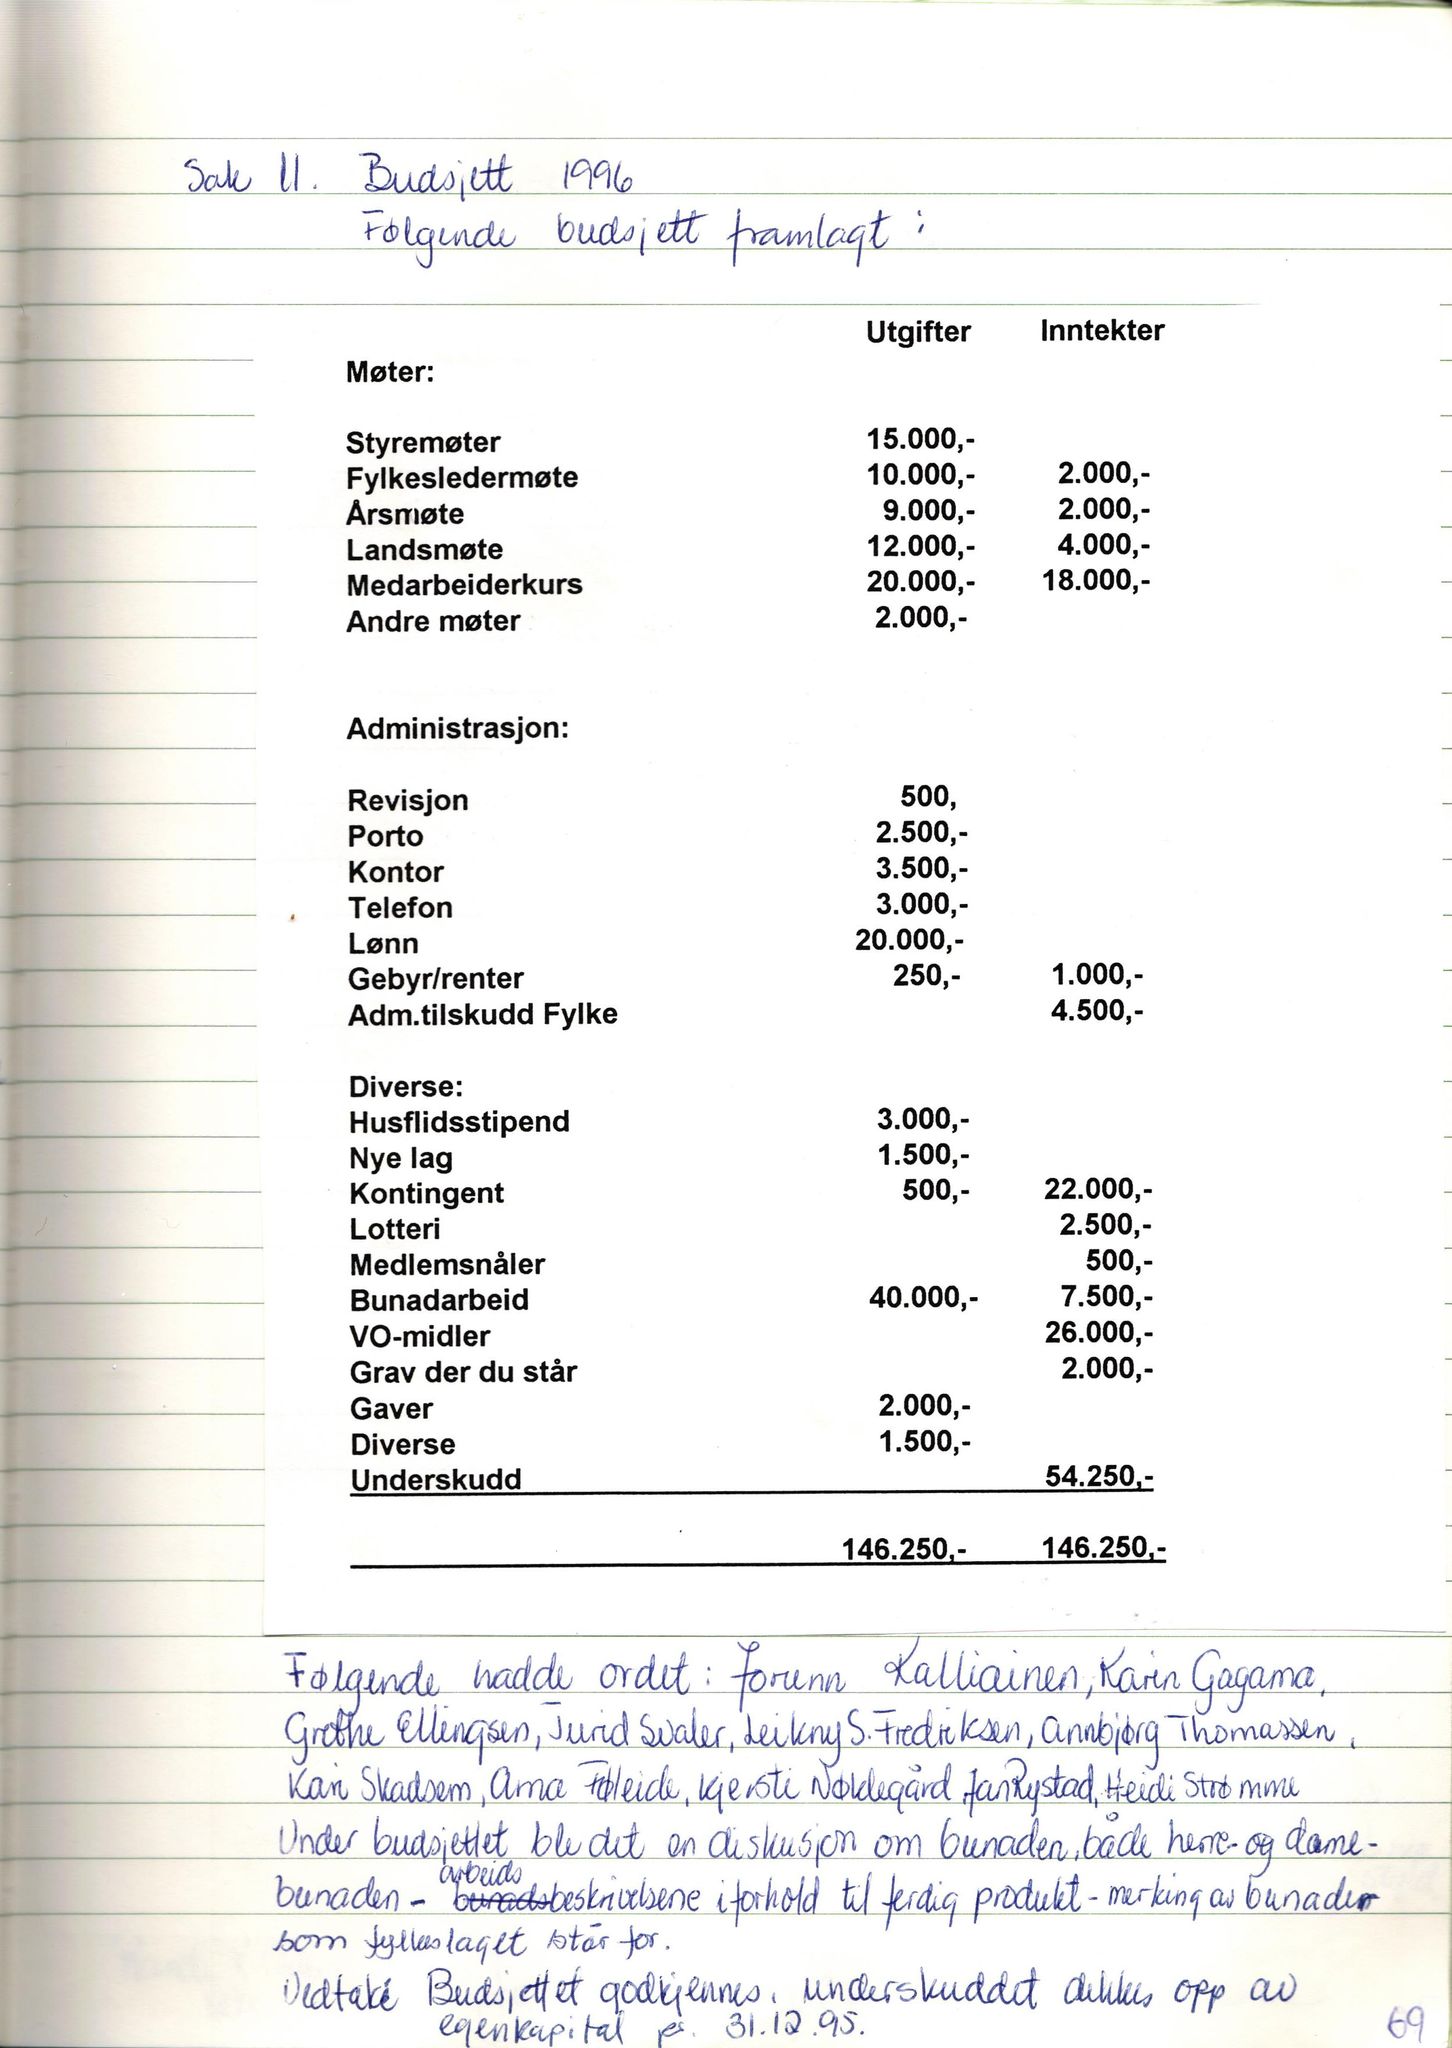 Sak 11. Budsjett 1996
Følgende budsjett framlagt:
Utgifter Inntekter
Møter:
Styremøter 15.000,-
Fylkesledermøte 10.000,- 2.000,-
Årsmøte 9.000,- 2.000,-
Landsmøte 12.000,- 4.000,-
Medarbeiderkurs 20.000,- 18.000,-
Andre møter 2.000,-
Administrasjon:
Revisjon 500,
Porto 2.500,-
Kontor 3.500,-
Telefon 3.000,-
Lønn 20.000,-
Gebyr/renter 250,- 1.000,-
Adm.tilskudd Fylke 4.500,-
Diverse:
Husflidsstipend 3.000,-
Nye lag 1.500,-
Kontingent 500,- 22.000,-
Lotteri 2.500,-
Medlemsnåler 500,-
Bunadarbeid 40.000,- 7.500,-
VO-midler 26.000,-
Grav der du står 2.000,-
Gaver 2.000,-
Diverse 1.500,-
Underskudd 54.250,-
146.250,- 146.250,-
Følgende hadde ordet: Jorunn Kalliainen, Karin Gagama,
Grethe Ellingsen, Turid Svaler, Leikny S. Fredriksen, Annbjørg Thomassen,
Kari Skadsem, Arna Føleide, Kjersti Nøklegård, Jan Rystad, Heidi Strømme
Under budsjettet ble det en diskusjon om bunaden, både herre- og dame-
bunaden - arbeidsbeskrivelsene i forhold til ferdig produkt - merking av bunader
som fylkeslaget står for.
Vedtak: Budsjettet godkjennes, underskuddet dekkes opp av
egenkapital pr. 31.12.95.
69